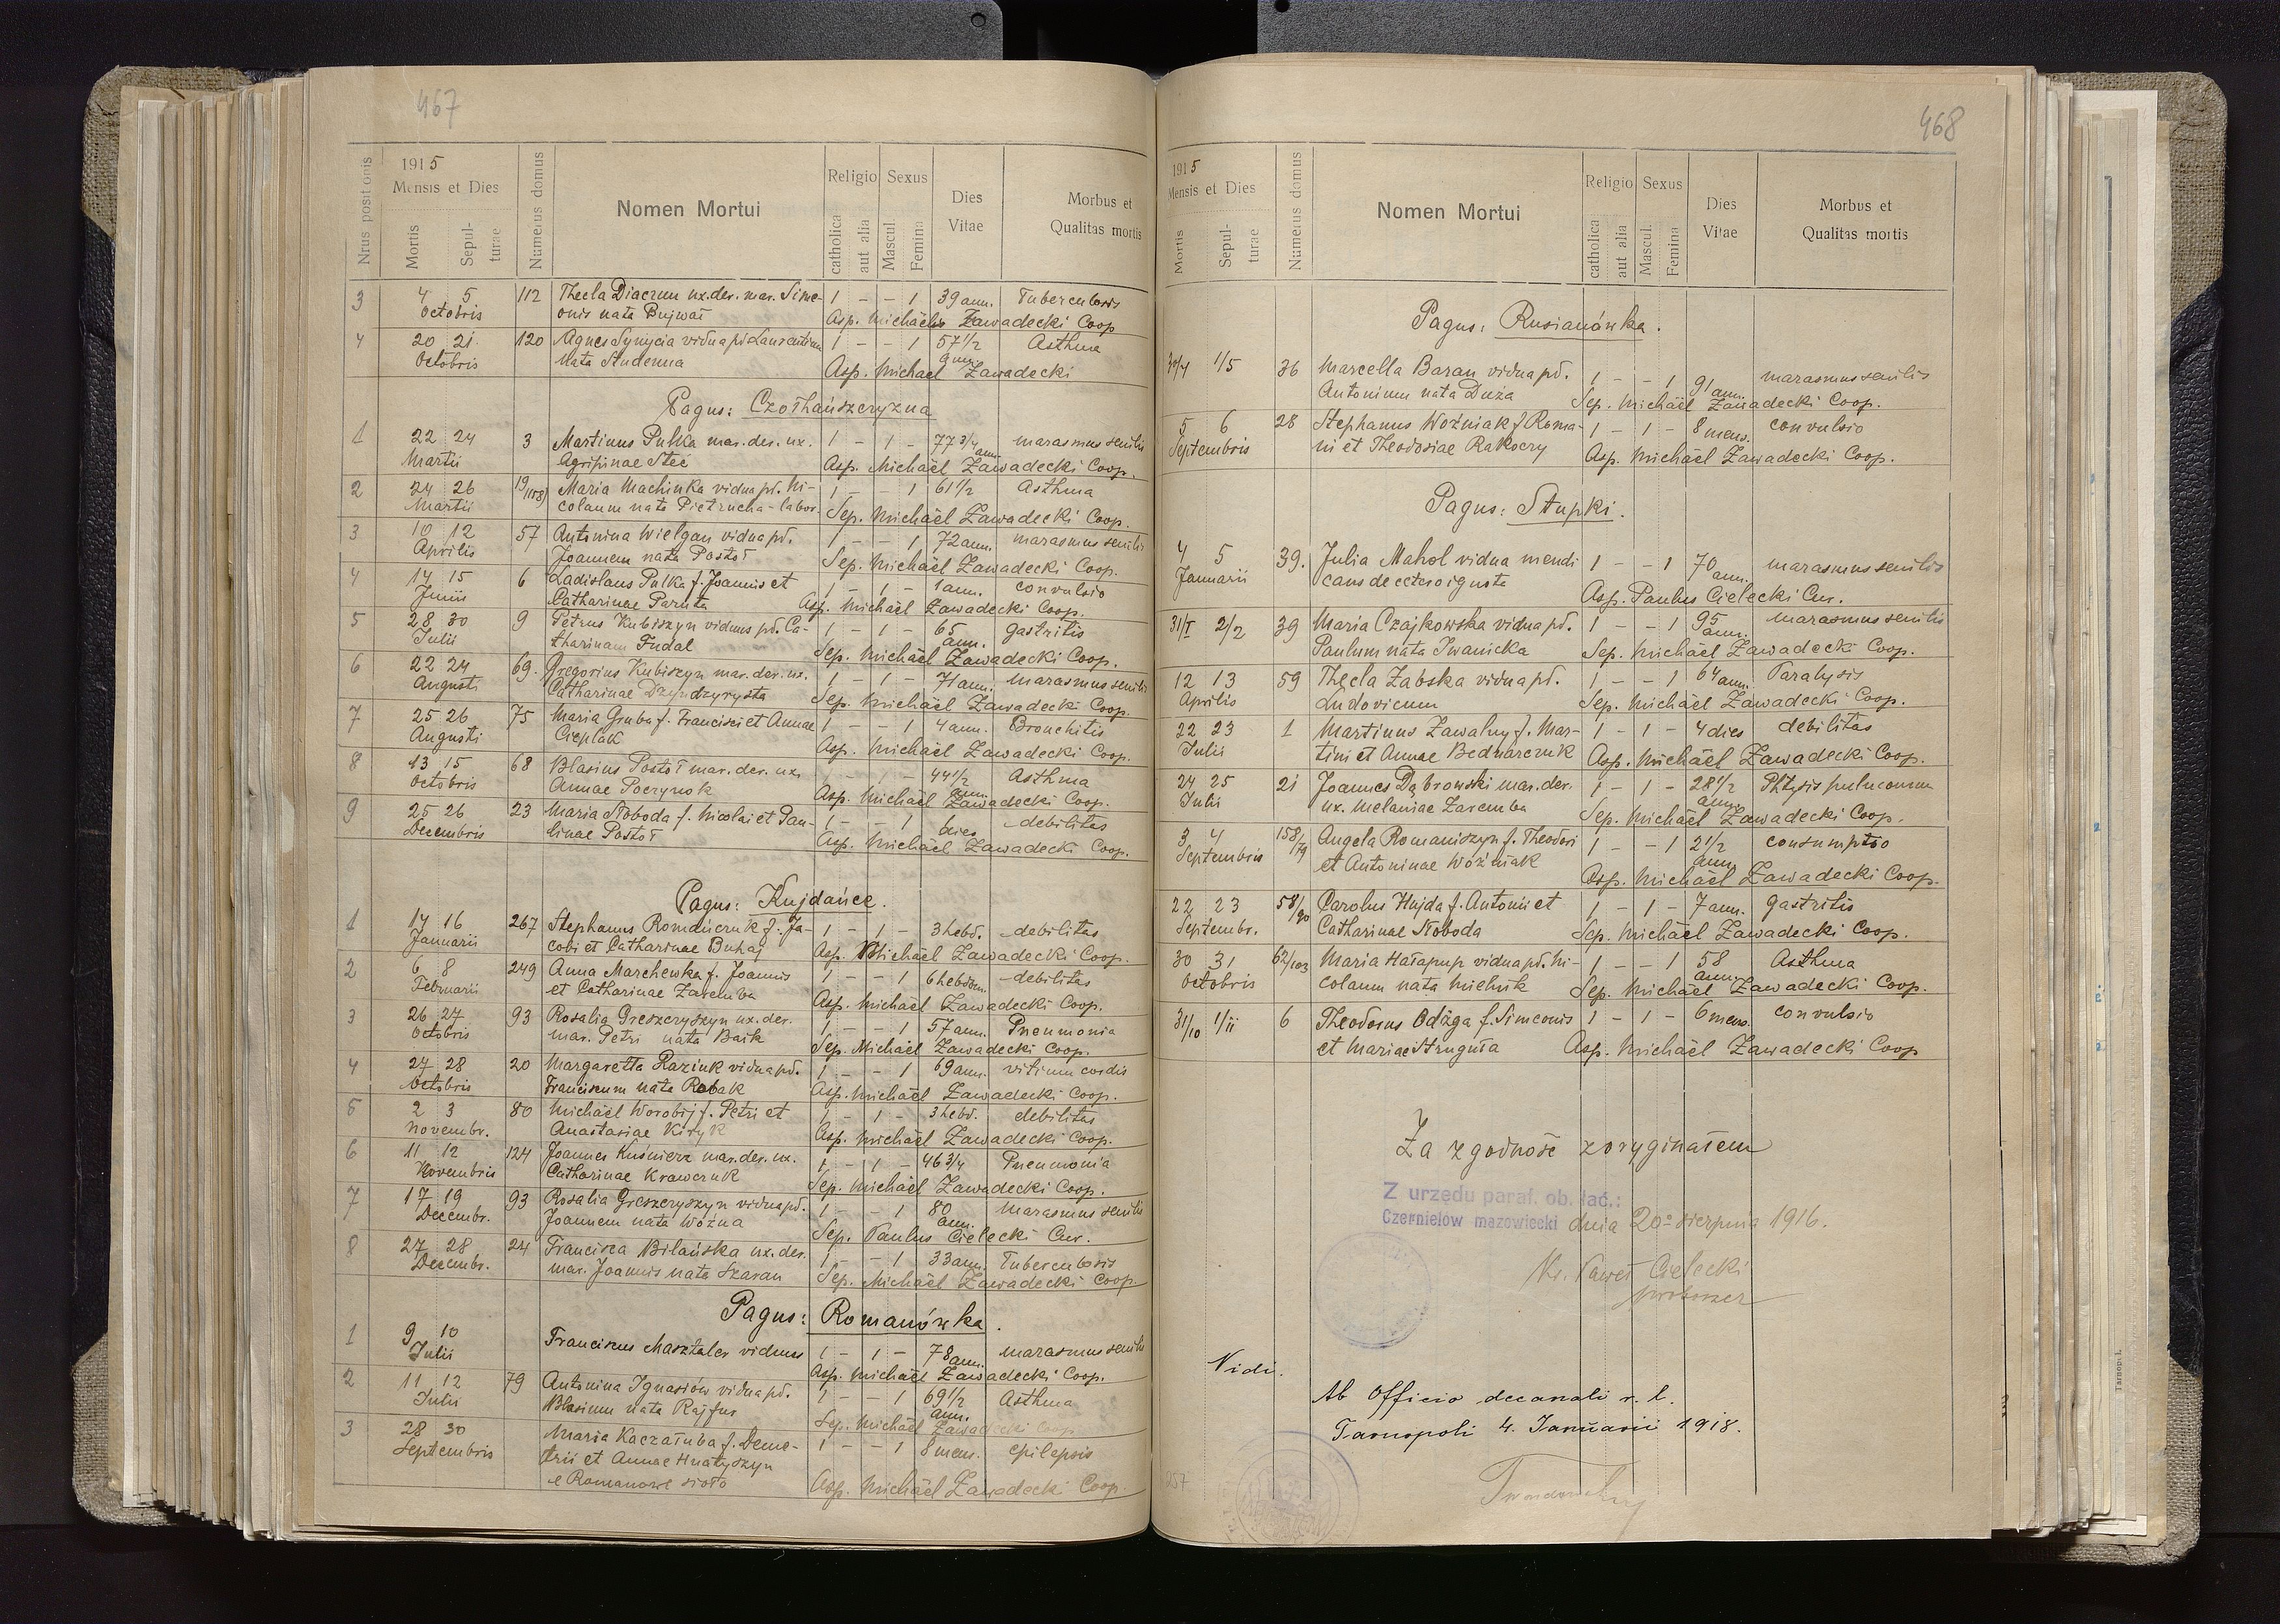 467
Nrus positionis
1915
Mensis et Dies
Mortis
Sepulturae
Numerus domus
Nomen Mortui
Religio
catholica
aut alia
Sexus
Mascul
Femina
Dies
Vitae
Morbus et
Qualitas mortis
3 4 5 112 Thecla Diaczun ux. der. mar. Sime- 1 - - 1 39 ann. Tuberculosis
Octobris onis nata Bujwał Asp. Michäelis Zawadecki Coop
4 20 21 120 Agnes Synycia vidua pd Laurentium 1 - - 1 57 1/2 Asthma
Octobris nata Studenna ann. Asp. Michael Zawadecki
Pagus: Czołhańszczyzna
1 22 24 3 Martinus Pulka mar. der. ux. 1 - 1 - 77 3/4 ann. marasmus senilis
Martii Agripinae Steć Asp. Michaël Zawadecki Coop.
2 24 26 19/(158) Maria Machinka vidua pd. Ni- 1 - - 1 61 1/2 Asthma
Martii colaum nata Pietrucha - labor. Sep. Michaël Zawadecki Coop.
3 10 12 57 Antonina Wielgan vidua pd. 1 - - 1 72 ann. marasmus senilis
Aprilis Joannem nata Postoł Sep. Michaël Zawadecki Coop.
4 14 15 6 Ladislaus Pulka f. Joannis et 1 - 1 - 1 ann. convulsio
Junii Catharinae Paruta Asp. Michaël Zawadecki Coop.
5 28 30 9 Petrus Kubiszyn viduus pd. Ca- 1 - 1 - 65 ann. gastritis
Julii tharinam Fudal Sep. Michaël Zawadecki Coop.
6 22 24 69. Gregorius Kubiszyn mar. der. ux. 1 - 1 - 71 ann. marasmus senilis
Augusti Catharinae Dzyndzyrysta Sep. Michaël Zawadecki Coop.
7 25 26 75 Maria Gruba f. Francisci et Annae 1 - - 1 4 ann. Bronchitis
Augusti Cieplak Asp. Michaël Zawadecki Coop.
8 13 15 68 Blasius Postoł mar. der. ux. 1 - 1 - 44 1/2 ann. Asthma
Octobris Annae Poczynok Asp. Michaël Zawadecki Coop.
9 25 26 23 Maria Słoboda f. Nicolai et Pau- 1 - - 1 debilitas
Decembris linae Postoł Asp. Michaël Zawadecki Coop.
Pagus: Kujdańce.
1 14 16 267 Stephanus Romańczuk f. Ja- 1 - 1 - 3 hebd. debilitas
Januarii cobi et Catharinae Buhaj Asp. Michäel Zawadecki Coop.
2 6 8 249 Anna Marchewka f. Joannis 1 - - 1 6 hebdom. debilitas
Februarii et Catharinae Zaremba Asp. Michaël Zawadecki Coop.
3 26 27 93 Rosalia Greszczyszyn ux. der. 1 - - 1 57 ann. Pneumonia
Octobris mar. Petri nata Baik Sep. Michäel Zawadecki Coop.
4 27 28 20 Margaretta Raziuk vidua pd. 1 - - 1 69 ann. vitium cordis
Octobris Franciscum nata Robak Asp. Michaël Zawadecki Coop.
5 2 3 80 Michäel Worobij f. Petri et 1 - 1 - 3 hebd. debilitas
Novembr. Anastasiae Kiryk Asp. Michaël Zawadecki Coop.
6 11 12 124 Joannes Kuśnierz mar. der. ux. 1 - 1 - 46 3/4 Pneumonia
Novembris Catharinae Krawczuk Sep. Michaël Zawadecki Coop.
7 17 19 93 Rosalia Greszczyszyn vidua pd. 1 - - 1 80 ann. marasmus senilis
Decembr. Joannem nata Woźna Sep. Paulus Cielecki Cur.
8 27 28 24 Francisca Bilańska ux. der. 1 - - 1 33 ann. Tuberculosis
Decembr. mar. Joannis nata Szaran Sep. Michaël Zawadecki Coop.
Pagus: Romanówka.
1 9 10 Franciscus Masztaler viduus 1 - 1 - 78 ann. marasmus senilis
Julii Asp. Michaël Zawadecki Coop.
2 11 12 79 Antonina Ignasiów vidua pd. 1 - - 1 69 1/2 ann. Asthma
Julii Blasium nata Rajfur Sep. Michäel Zawadecki Coop
3 28 30 Maria Kaczałuba f. Deme- 1 - - 1 8 mens. epilepsis
Septembris trii et Annae Hnatyszyn
e Romanowe sioło Asp. Michäel Zawadecki Coop.
468
1915
Mensis et Dies
Mortis
Sepulturae
Numerus domus
Nomen Mortui
Religio
catholica
aut alia
Sexus
Mascul.
Femina
Dies
Vitae
Morbus et
Qualitas mortis
Pagus: Rusianówka.
30/4 1/5 36 Marcella Baran vidua pd. 1 - - 1 91 ann. marasmus senilis
Antonium nata Duża Sep. Michäel Zawadecki Coop.
5 6 28 Stephanus Woźniak f Roma- 1 - 1 - 8 mens. convulsio
Septembris ni et Theodosiae Rakoczy Asp. Michaël Zawadecki Coop.
Pagus: Stupki.
4 5 39. Julia Mahol vidua mendi 1 - - 1 70 ann. marasmus senilis
Januarii cans de cetero ignota Asp. Paulus Cielecki Cur.
31/I 2/2 39 Maria Czajkowska vidua pd. 1 - - 1 95 ann. marasmus senilis
Paulum nata Iwanicka Sep. Michäel Zawadecki Coop.
12 13 59 Thecla Żabska vidua pd. 1 - - 1 64 ann. Paralysis
Aprilis Ludovicum Sep. Michaël Zawadecki Coop.
22 23 1 Martinus Zawalny f. Mar- 1 - 1 - 4 dies debilitas
Julii tini et Annae Bednarczuk Asp. Michäel Zawadecki Coop.
24 25 21 Joannes Dąbrowski mar. der. 1 - 1 - 28 1/2 ann. Phtysis pulmonum
Julii ux. Melaniae Zaremba Sep. Michaël Zawadecki Coop.
3 4 158/79 Angela Romaniszyn f. Theodori 1 - - 1 2 1/2 ann. consumptio
Septembris et Antoninae Woźniak Asp. Michäel Zawadecki Coop.
22 23 58/90 Carolus Hujda f. Antonii et 1 - 1 - 7 ann. gastritis
Septembr. Catharinae Słoboda Sep. Michäel Zawadecki Coop.
30 31 62/103 Maria Hałapup vidua pd. Ni- 1 - - 1 58 ann. Asthma
Octobris colaum nata Mielnik Sep. Michäel Zawadecki Coop.
31/10 1/11 6 Theodorus Odżga f. Simeonis 1 - 1 - 6 mens. convulsio
et Mariae Struguła Asp. Michäel Zawadecki Coop
Za zgodność z oryginałem
Z urzędu paraf. ob. łać.:
Czernielów mazowiecki dnia 20-o sierpnia 1916.
Ks. Paweł Cielecki
proboszcz
Vidi.
Ab Officio decanali r. l.
Tarnopoli 4. Januarii 1918.
257
Tarnopol.